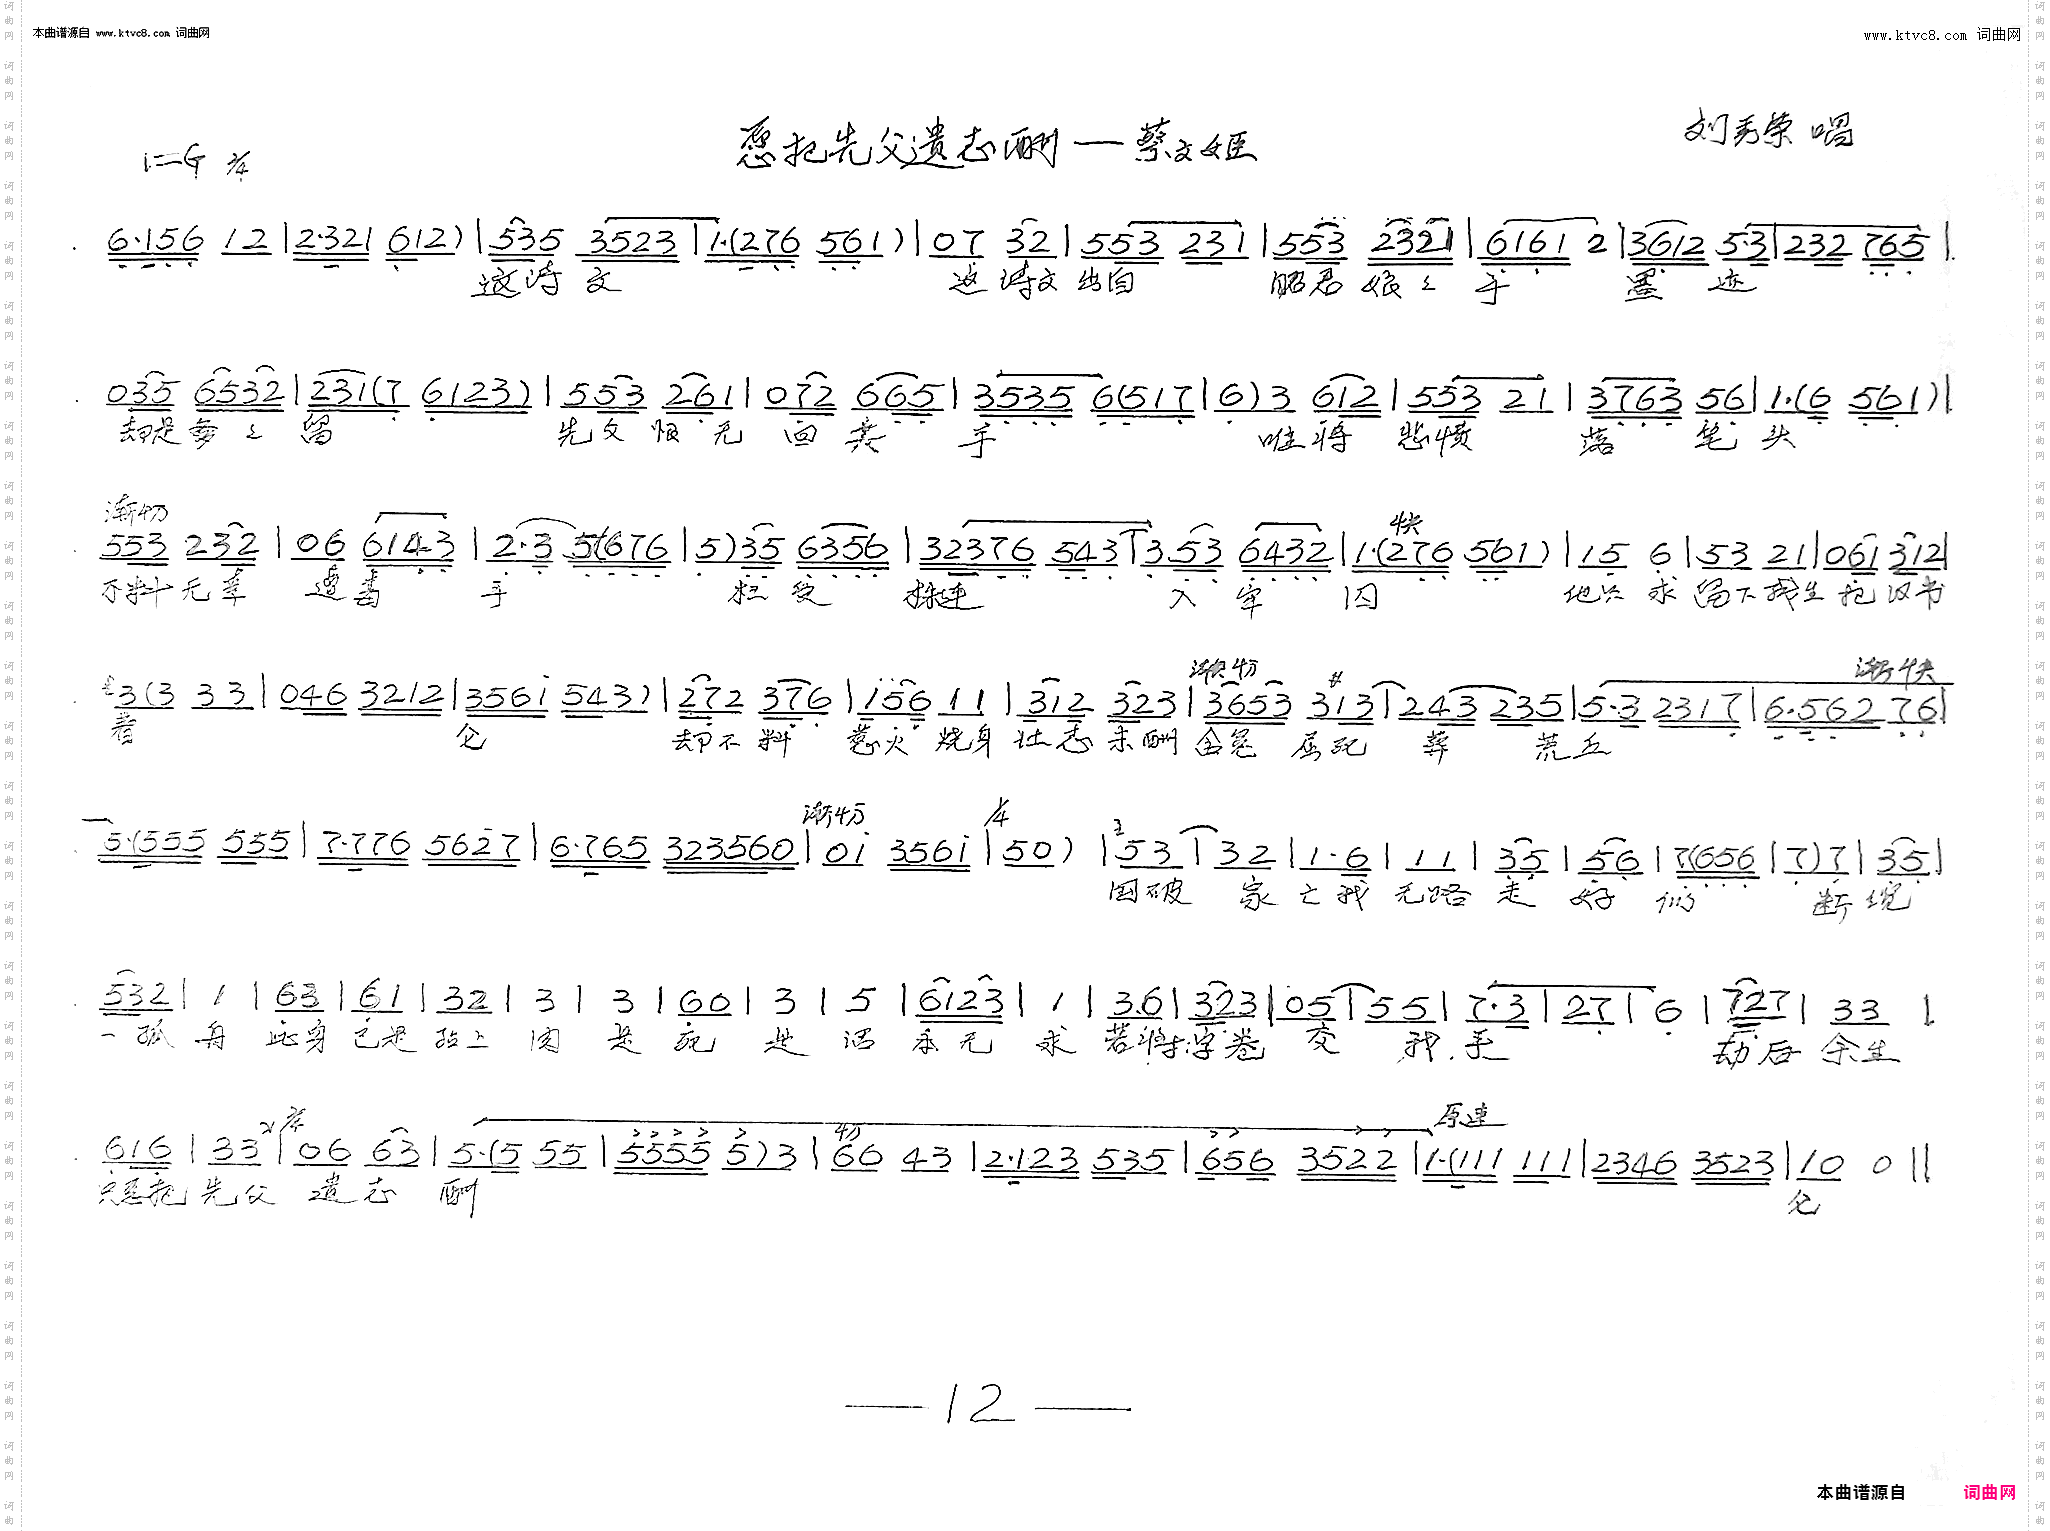 本曲谱源自 www.ktvc8.com 词曲网
www.ktvc8.com 词曲网
愿把先父遗志酬一蔡文姬
刘秀荣 唱
1=G 2/4
6·156 12 | 2·321 612) | 535 3523 | 1·(276 561) | 07 32 | 553 231 | 553 2321 | 6161 2 | 3612 5·3 | 232 765 |
这诗文 这诗文出自 昭君娘々手 墨迹
035 6532 | 231(7 6123) | 553 261 | 072 665 | 3535 6(517 | 6)3 612 | 553 21 | 3763 56 | 1·(6 561) |
却是 々留 先父恨无回 手 唯将悲愤落笔头
渐切 快
553 232 | 06 6143 | 2·3 5(676 | 5)35 6356 | 32376 543 | 3·53 6432 | 1·(276 561) | 15 6 | 53 21 | 061 312 |
不料无辜遭毒手 枉受株连入牢囚 他只求留下我生把汉书
渐切 渐快
3(3 33 | 046 3212 | 356i 543) | 272 376 | i56 11 | 312 323 | 3653 313 | 243 235 | 5·3 2317 | 6·562 76 |
着 却不料惹火烧身壮志未酬含冤屈死葬荒丘
渐切 1/4
5·(555 555 | 7·776 5627 | 6·765 323560 | 0i 356i | 50) | 53 | 32 | 1·6 | 11 | 35 | 56 | 7(656 | 7)7 | 35 |
国破家亡我无路走 好似 断缆
532 | 1 | 63 | 61 | 32 | 3 | 3 | 60 | 3 | 5 | 6123 | 1 | 3·6 | 323 | 05 | 55 | 7·3 | 27 | 6 | 727 | 33 |
一孤舟 此身已是 是死是活本无求 若将字卷交我手 劫后余生
原速
616 | 33 | 06 63 | 5·(5 55 | 5555 5)3 | 66 43 | 2·123 535 | 656 3522 | 1·(111 111 | 2346 3523 | 10 0 ||
只愿把先父遗志酬
— 12 —
本曲谱源自 词曲网